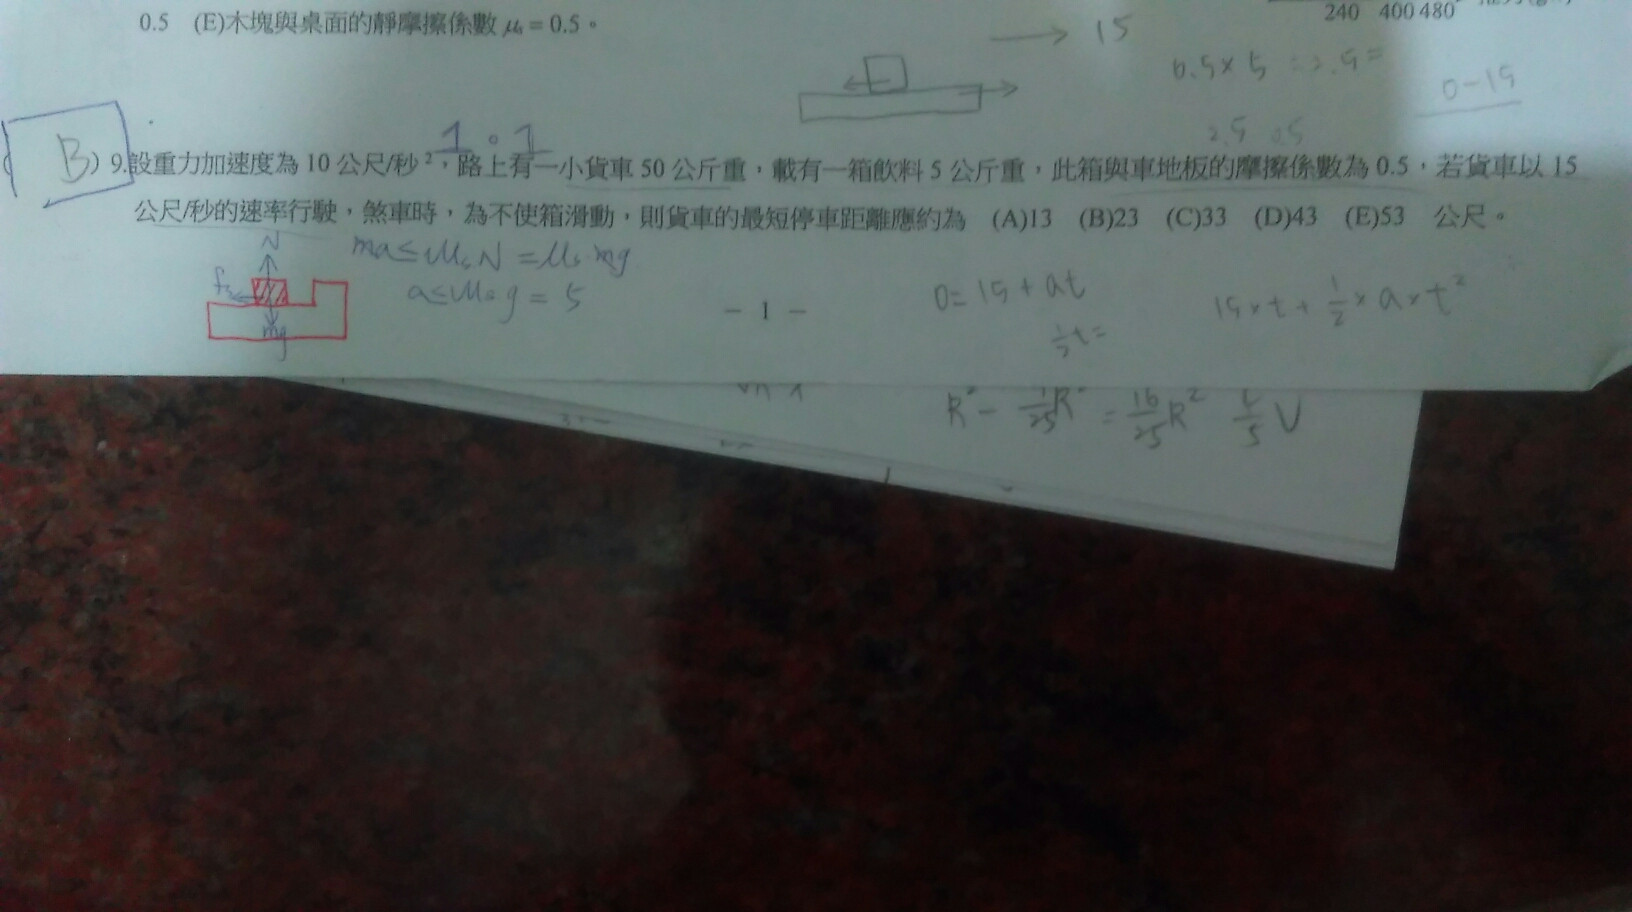 240 400 480
0.5 (E)木塊與桌面的靜摩擦係數 μs = 0.5。
15
0.5 × 5 = 2.5 =
0-15
2.5 0.5
1 。 1
B
) 9.設重力加速度為 10 公尺/秒²,路上有一小貨車 50 公斤重,載有一箱飲料 5 公斤重,此箱與車地板的摩擦係數為 0.5,若貨車以 15
公尺/秒的速率行駛,煞車時,為不使箱滑動,則貨車的最短停車距離應約為 (A)13 (B)23 (C)33 (D)43 (E)53 公尺。
N
ma ≤ μsN = μs mg
fs
a ≤ μs g = 5
mg
0 = 15 + at
15 × t + 1/2 × a × t²
− 1 −
R² − 1/25 R² = 16/25 R²